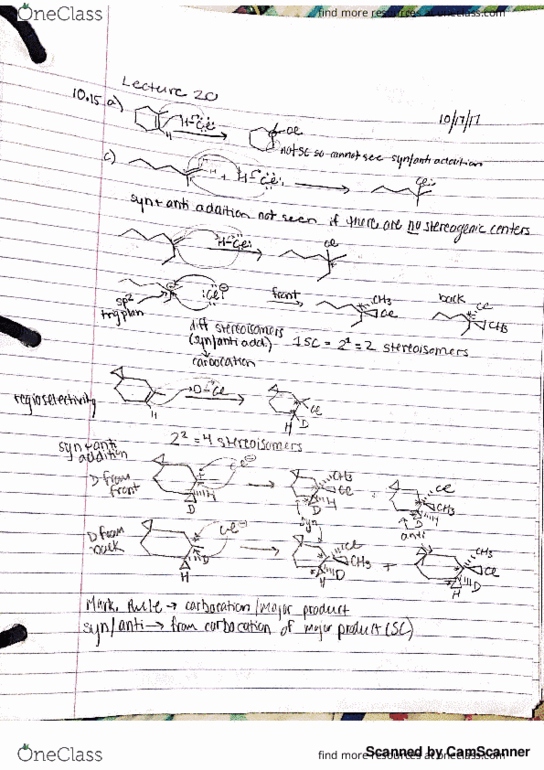 OneClass
find more resources at oneclass.com
Lecture 20
10/17/17
10.15.a)
H-Cl
Cl
H
not SC so cannot see syn/anti addition
c)
H
+ H-Cl:
Cl:
syn + anti addition not seen if there are no stereogenic centers
H-Cl:
Cl
sp²
trg plan
:Cl:⊖
front
CH3
Cl
back
Cl
CH3
diff stereoisomers
(syn/anti add)
1SC = 2¹ = 2 stereoisomers
carbocation
regioselectivity
D-Cl
H
Cl
D
H
2² = 4 stereoisomers
syn + anti
addition
D from
front
Cl⊖
H
D
CH3
Cl
H
D
Cl
CH3
H
D
syn
anti
D from
back
Cl⊖
D
H
Cl
CH3
D
H
+
CH3
Cl
D
H
Mark. Rule → carbocation/major product
syn/anti → from carbocation of major product (SC)
OneClass
find more resources at oneclass.com
Scanned by CamScanner